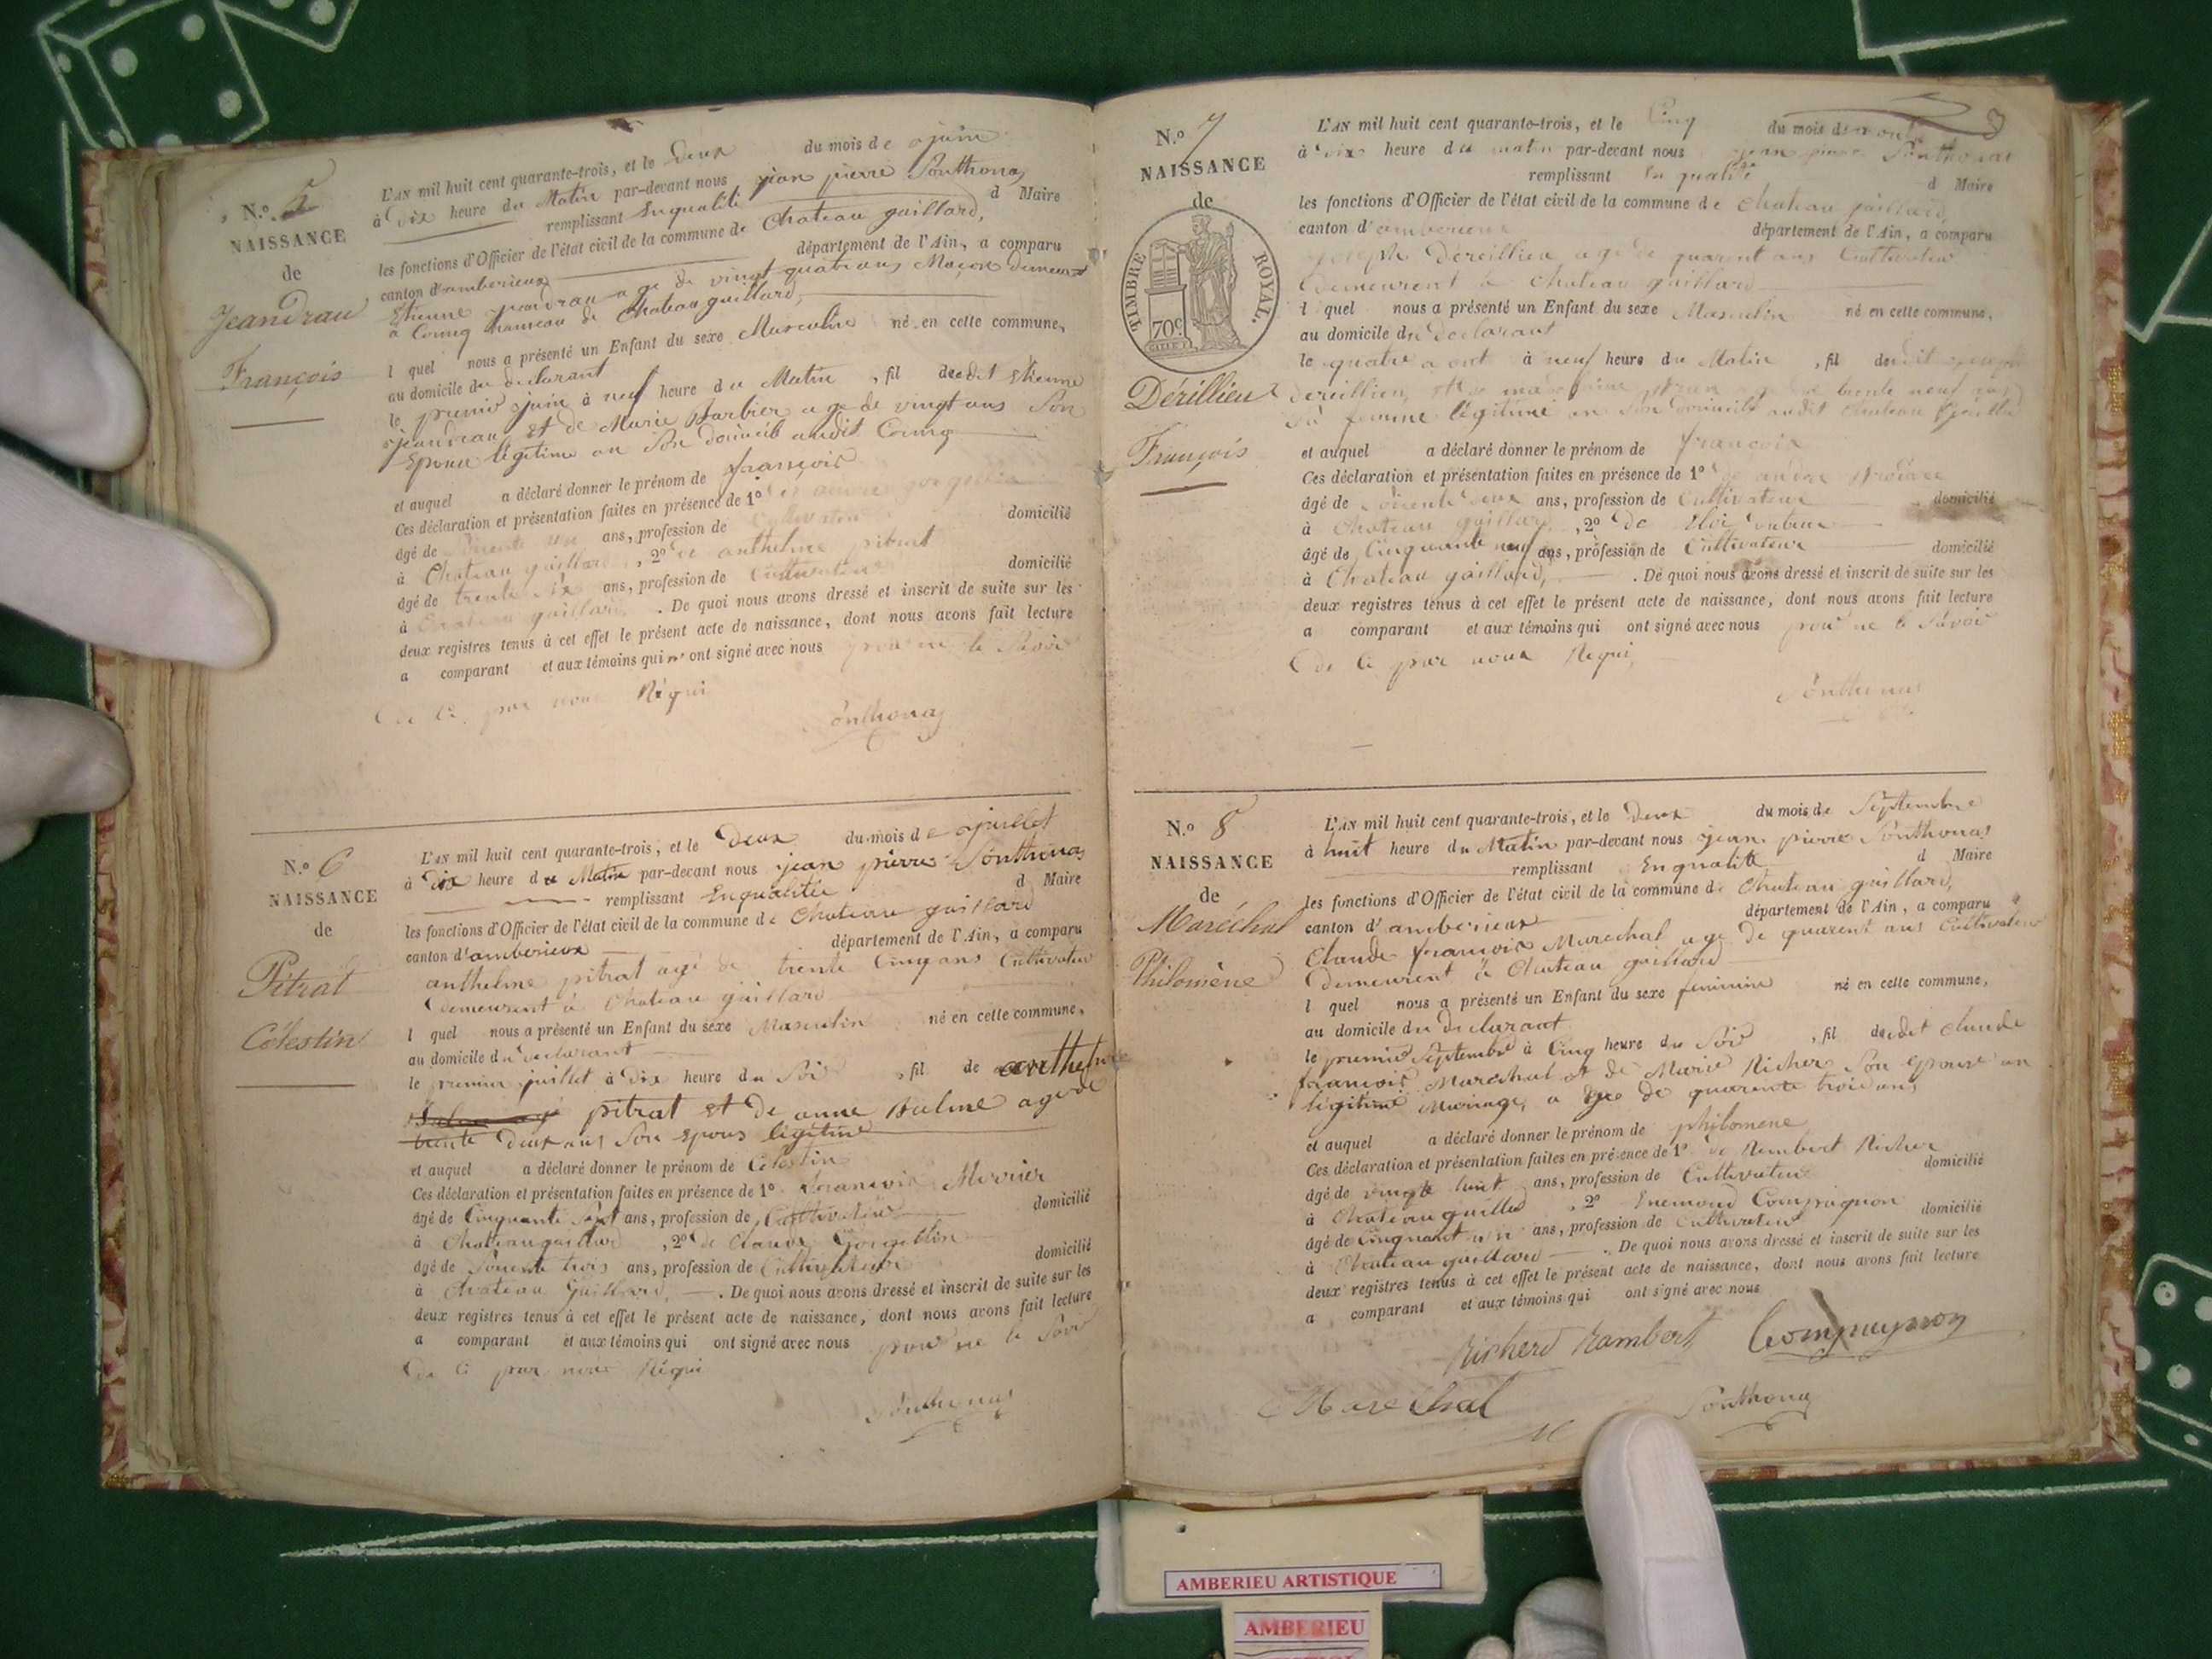 N.º 5
NAISSANCE
de
Jeandrau
François
L'AN mil huit cent quarante-trois, et le Deux du mois de juin
à Dix heure du Matin par-devant nous jean pierre Ponthonas
remplissant Enqualité d Maire
les fonctions d'Officier de l'état civil de la commune de Chateau gaillard,
canton d'amberieux département de l'Ain, a comparu
Etienne jeandrau age de vingt quatre ans Maçon demeurant
à Coung hameau de Chateau gaillard,
l quel nous a présenté un Enfant du sexe Masculin né en cette commune,
au domicile du declarant
le premier juin à neuf heure du Matin , fil de dit Etienne
jeandrau Et de Marie Barbier age de vingt ans Son
Epouse légitime en Son domicile audit Coung
et auquel a déclaré donner le prénom de françois
Ces déclaration et présentation faites en présence de 1º
âgé de ans, profession de Cultivateur domicilié
à Chateau gaillard , 2º de anthelme pitrat
âgé de trente six ans, profession de Cultivateur domicilié
à Chateau gaillard . De quoi nous avons dressé et inscrit de suite sur les
deux registres tenus à cet effet le présent acte de naissance, dont nous avons fait lecture
a comparant et aux témoins qui n'ont signé avec nous pour ne le Savoir
De Ce par nous Réqui
Ponthonas
N.º 6
NAISSANCE
de
Pitrat
Célestin
L'AN mil huit cent quarante-trois, et le Deux du mois de juillet
à Dix heure du Matin par-devant nous jean pierre Ponthonas
remplissant Enqualitée d Maire
les fonctions d'Officier de l'état civil de la commune de Chateau gaillard
canton d'amberieux département de l'Ain, a comparu
anthelme pitrat agé de trente Cinq ans Cultivateur
demeurent à Chateau gaillard
l quel nous a présenté un Enfant du sexe Masculin né en cette commune,
au domicile du declarant
le premier juillet à Dix heure du Soir , fil de anthelme
pitrat et de anne Balme age de
trente Deux ans Son Epous légitime
et auquel a déclaré donner le prénom de Celestin
Ces déclaration et présentation faites en présence de 1º françois
âgé de Cinquante Sept ans, profession de Cultivateur domicilié
à Chateaugaillard , 2º de Claude
âgé de Soixente trois ans, profession de Cultivateur domicilié
à Chateau Gaillard, . De quoi nous avons dressé et inscrit de suite sur les
deux registres tenus à cet effet le présent acte de naissance, dont nous avons fait lecture
a comparant et aux témoins qui ont signé avec nous pour ne le Savoir
De Ce par nous Réqui
Ponthonas
3
N.º 7
NAISSANCE
de
TIMBRE ROYAL.
70c
Dérillieu
François
L'AN mil huit cent quarante-trois, et le Cinq du mois de aout
à Dix heure du matin par-devant nous jean pierre Ponthonas
remplissant En qualité d Maire
les fonctions d'Officier de l'état civil de la commune de Chateau gaillard,
canton d'amberieux département de l'Ain, a comparu
joseph Dereillieu age de quarent ans Cultivateur
demeurent à Chateau gaillard
l quel nous a présenté un Enfant du sexe Masculin né en cette commune,
au domicile du declarant
le quatre aout à neuf heure du Matin , fil de dit joseph
dereillieu, age de trente neuf ans
Sa femme légitime en Son domicile audit Chateau Gaillard
et auquel a déclaré donner le prénom de françois
Ces déclaration et présentation faites en présence de 1º de andre
âgé de ans, profession de Cultivateur domicilié
à Chateau gaillard , 2º de Eloi
âgé de Cinquante neuf ans, profession de Cultivateur domicilié
à Chateau gaillard, . De quoi nous avons dressé et inscrit de suite sur les
deux registres tenus à cet effet le présent acte de naissance, dont nous avons fait lecture
a comparant et aux témoins qui ont signé avec nous pour ne le Savoir
De Ce par nous Requi,
Ponthonas
N.º 8
NAISSANCE
de
Maréchal
Philomène
L'AN mil huit cent quarante-trois, et le Deux du mois de Septembre
à huit heure du Matin par-devant nous jean pierre Ponthonas
remplissant Enqualité d Maire
les fonctions d'Officier de l'état civil de la commune de Chateau gaillard,
canton d'amberieux département de l'Ain, a comparu
Claude françois Marechal age de quarent ans Cultivateur
demeurent à Chateau gaillard
l quel nous a présenté un Enfant du sexe feminine né en cette commune,
au domicile du declarant
le premier Septembre à Cinq heure du Soir , fil de dit claude
françois Marechal et de Marie Richer Son epouse en
légitime Mariage, age de quarente trois ans,
et auquel a déclaré donner le prénom de philomene
Ces déclaration et présentation faites en présence de 1º de Rembert Richer
âgé de vingte huit ans, profession de Cultivateur domicilié
à Chateau gaillard , 2º Enemond Compagnon
âgé de Cinquant un ans, profession de Cultivateur domicilié
à Chateau gaillard . De quoi nous avons dressé et inscrit de suite sur les
deux registres tenus à cet effet le présent acte de naissance, dont nous avons fait lecture
a comparant et aux témoins qui ont signé avec nous
Richerd Rambert Compagnon
Marechal Ponthonas
M
AMBERIEU ARTISTIQUE
AMBERIEU